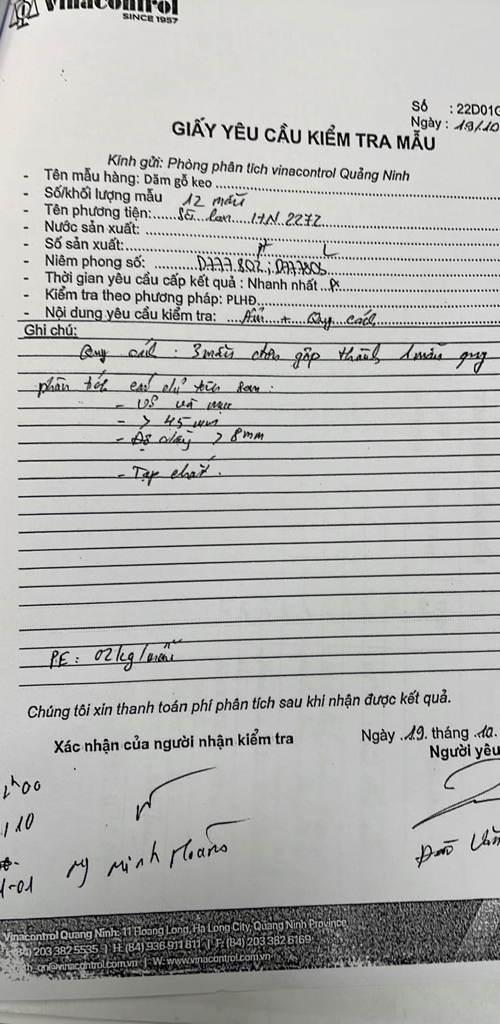 Vinacontrol
SINCE 1957
Số : 22D01G
Ngày : 19/10
GIẤY YÊU CẦU KIỂM TRA MẪU
Kính gửi: Phòng phân tích vinacontrol Quảng Ninh
- Tên mẫu hàng: Dăm gỗ keo
- Số/khối lượng mẫu 12 mẫu
- Tên phương tiện: 2272
- Nước sản xuất:
- Số sản xuất:
- Niêm phong số: D777.802;
- Thời gian yêu cầu cấp kết quả : Nhanh nhất
- Kiểm tra theo phương pháp: PLHĐ
- Nội dung yêu cầu kiểm tra: Ẩm + Quy cách
Ghi chú:
Quy cách : 3 mẫu gộp thành 1 mẫu
phân tích chỉ tiêu sau :
- và
- > 45 mm
- dày > 8mm
- Tạp chất.
P.E : 02kg/mẫu
Chúng tôi xin thanh toán phí phân tích sau khi nhận được kết quả.
Ngày .19. tháng .10.
Xác nhận của người nhận kiểm tra
Người yêu
h00
110
1-01
Ng Minh Hoàng
Văn
Vinacontrol Quang Ninh: 11 Hoang Long, Ha Long City, Quang Ninh Province
(84) 203 382 5535 | H: (84) 936 911 811 | F: (84) 203 382 6169
_qn@vinacontrol.com.vn | W: www.vinacontrol.com.vn